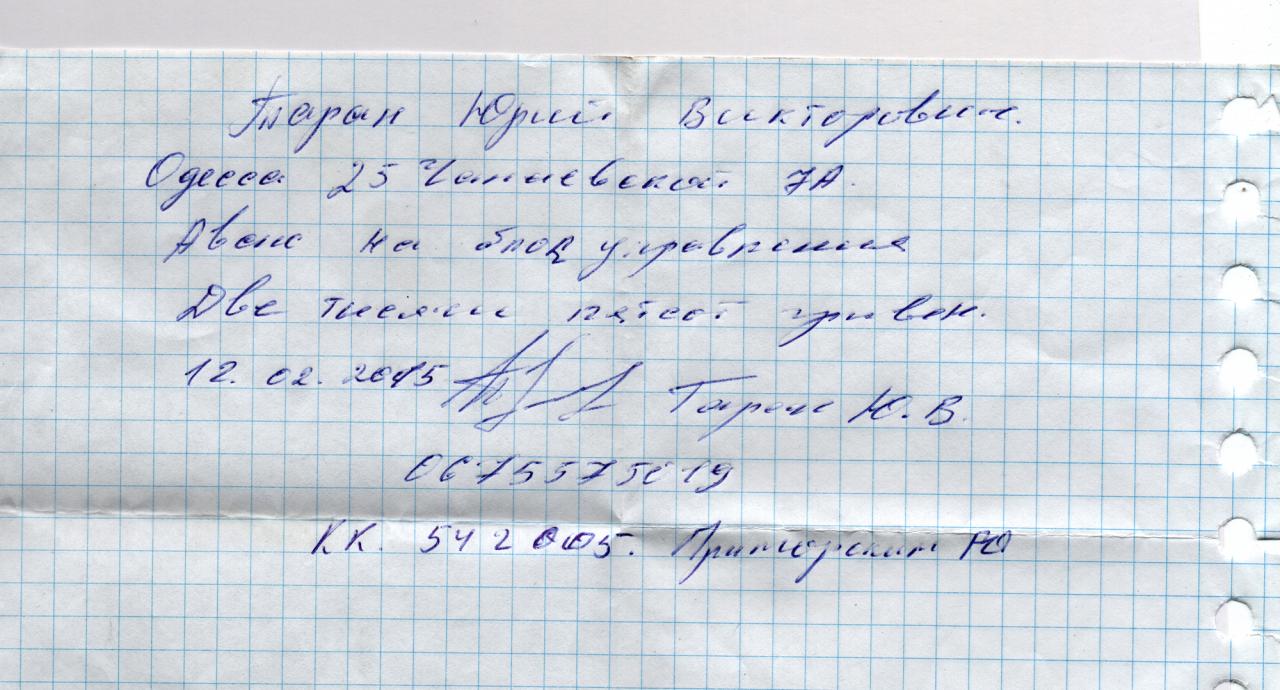 Таран Юрий Викторович.
Одесса 25 Чапаевской 7А.
Аванс на блок управления
Две тысячи пятсот гривен.
12.02.2015 Таран Ю.В.
0675575019
КК. 542005. Приморским РО